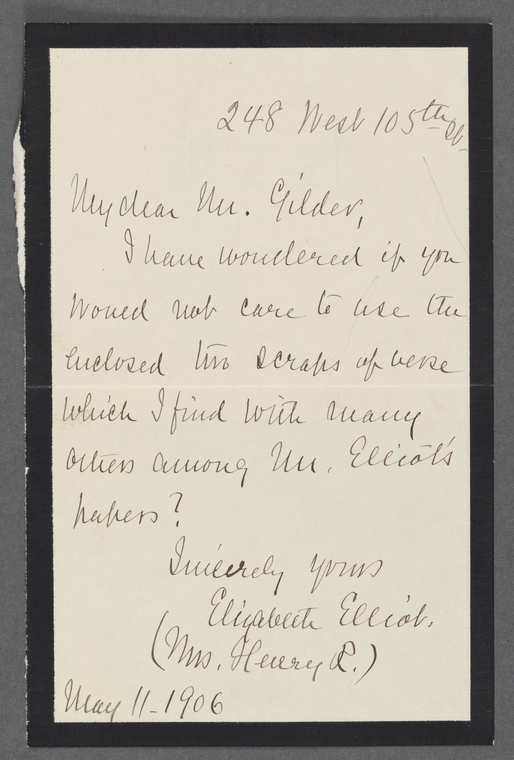 248 West 105th St.
My dear Mr. Gilder,
I have wondered if you
would not care to use the
enclosed two scraps of verse
which I find with many
others among Mr. Elliot's
papers?
Sincerely yours
Elizabeth Elliot.
(Mrs. Henry R.)
May 11 - 1906